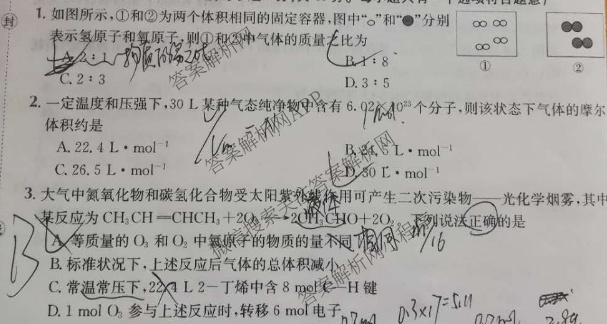 1. 如图所示,①和②为两个体积相同的固定容器,图中“○”和“●”分别
表示氢原子和氧原子,则①和②中气体的质量之比为
A. 2:1
B. 1:8
①
②
C. 2:3
D. 3:5
2. 一定温度和压强下,30 L 某种气态纯净物中含有 6.02×10²³个分子,则该状态下气体的摩尔
体积约是
A. 22.4 L·mol⁻¹
L·mol⁻¹
C. 26.5 L·mol⁻¹
D. 30 L·mol⁻¹
3. 大气中氮氧化物和碳氢化合物受太阳紫外线作用可产生二次污染物——光化学烟雾,其中
某反应为 CH₃CH=CHCH₃+2O₃→2CH₃CHO+2O₂ 下列说法正确的是
A. 等质量的 O₃ 和 O₂ 中氧原子的物质的量不同 相同
B. 标准状况下,上述反应后气体的总体积减小
C. 常温常压下,22.4 L 2-丁烯中含 8 mol C-H 键
D. 1 mol O₃ 参与上述反应时,转移 6 mol 电子
0.3×17=5.11